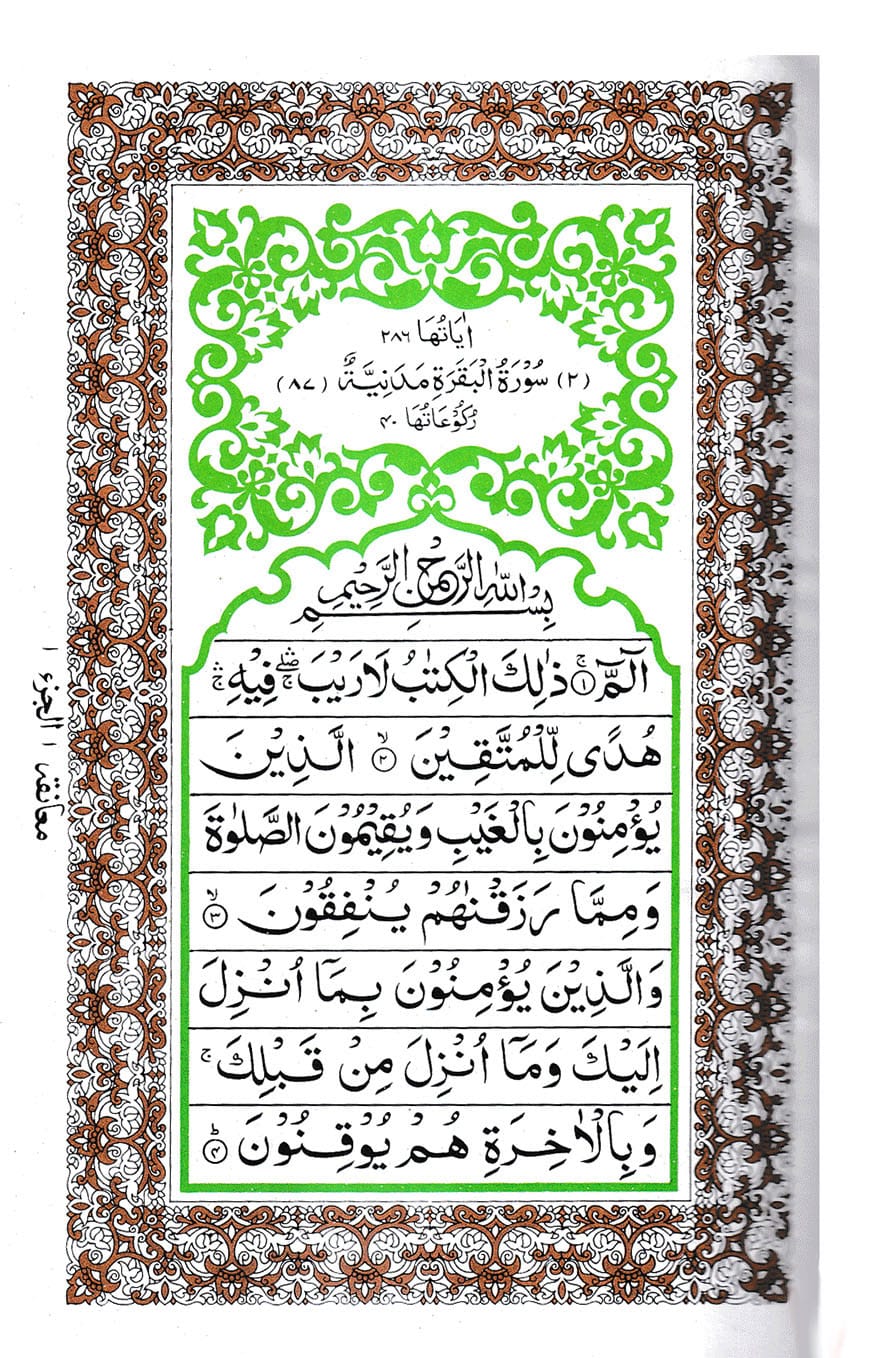 اٰيَاتُهَا ٢٨٦
(٢) سُوْرَةُ الْبَقَرَةِ مَدَنِيَّةٌ (٨٧)
رُكُوْعَاتُهَا ٤٠
بِسْمِ اللّٰهِ الرَّحْمٰنِ الرَّحِيْمِ
الٓمّٓ ۚ‏ ١ ذٰلِكَ الْكِتٰبُ لَا رَيْبَ ۛۖۚ فِيْهِ ۛۚ
هُدًى لِّلْمُتَّقِيْنَ ۙ‏ ٢ الَّذِيْنَ
يُؤْمِنُوْنَ بِالْغَيْبِ وَيُقِيْمُوْنَ الصَّلٰوةَ
وَمِمَّا رَزَقْنٰهُمْ يُنْفِقُوْنَ ۙ‏ ٣
وَالَّذِيْنَ يُؤْمِنُوْنَ بِمَآ اُنْزِلَ
اِلَيْكَ وَمَآ اُنْزِلَ مِنْ قَبْلِكَ ۚ
وَبِالْاٰخِرَةِ هُمْ يُوْقِنُوْنَ ؕ‏ ٤
معانقة ١ الجزء ١